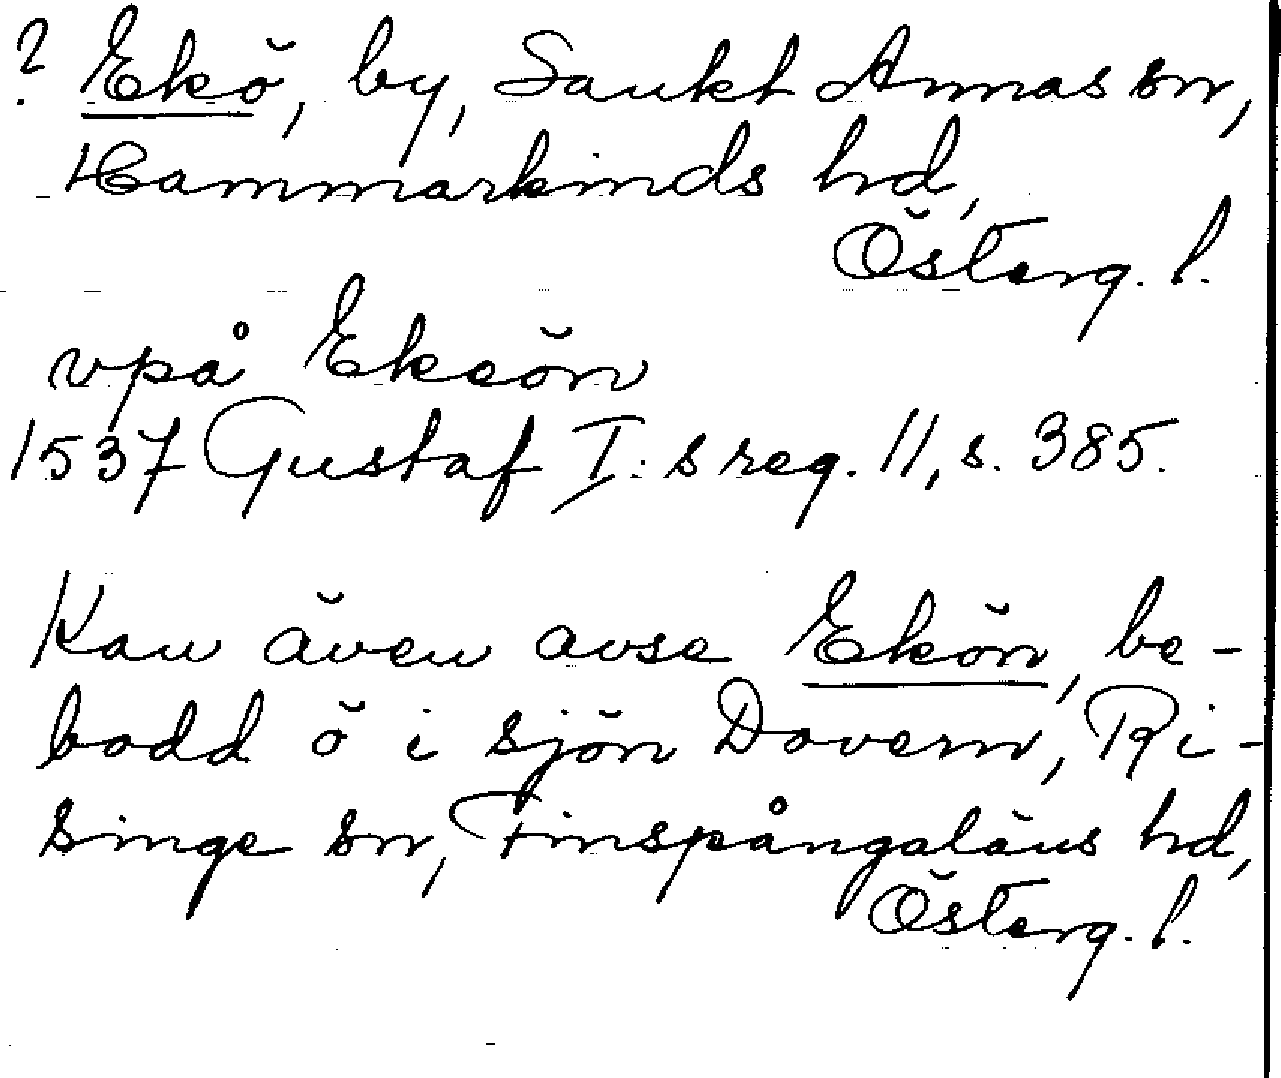 ? Ekö, by, Sankt Annas sn,
Hammarkinds hd,
Österg. l.
vpå Ekeön
1537 Gustaf I:s reg. 11, s. 385.
Kan även avse Ekön, be-
bodd ö i sjön Dovern, Ri-
singe sn, Finspångaläns hd,
Österg. l.